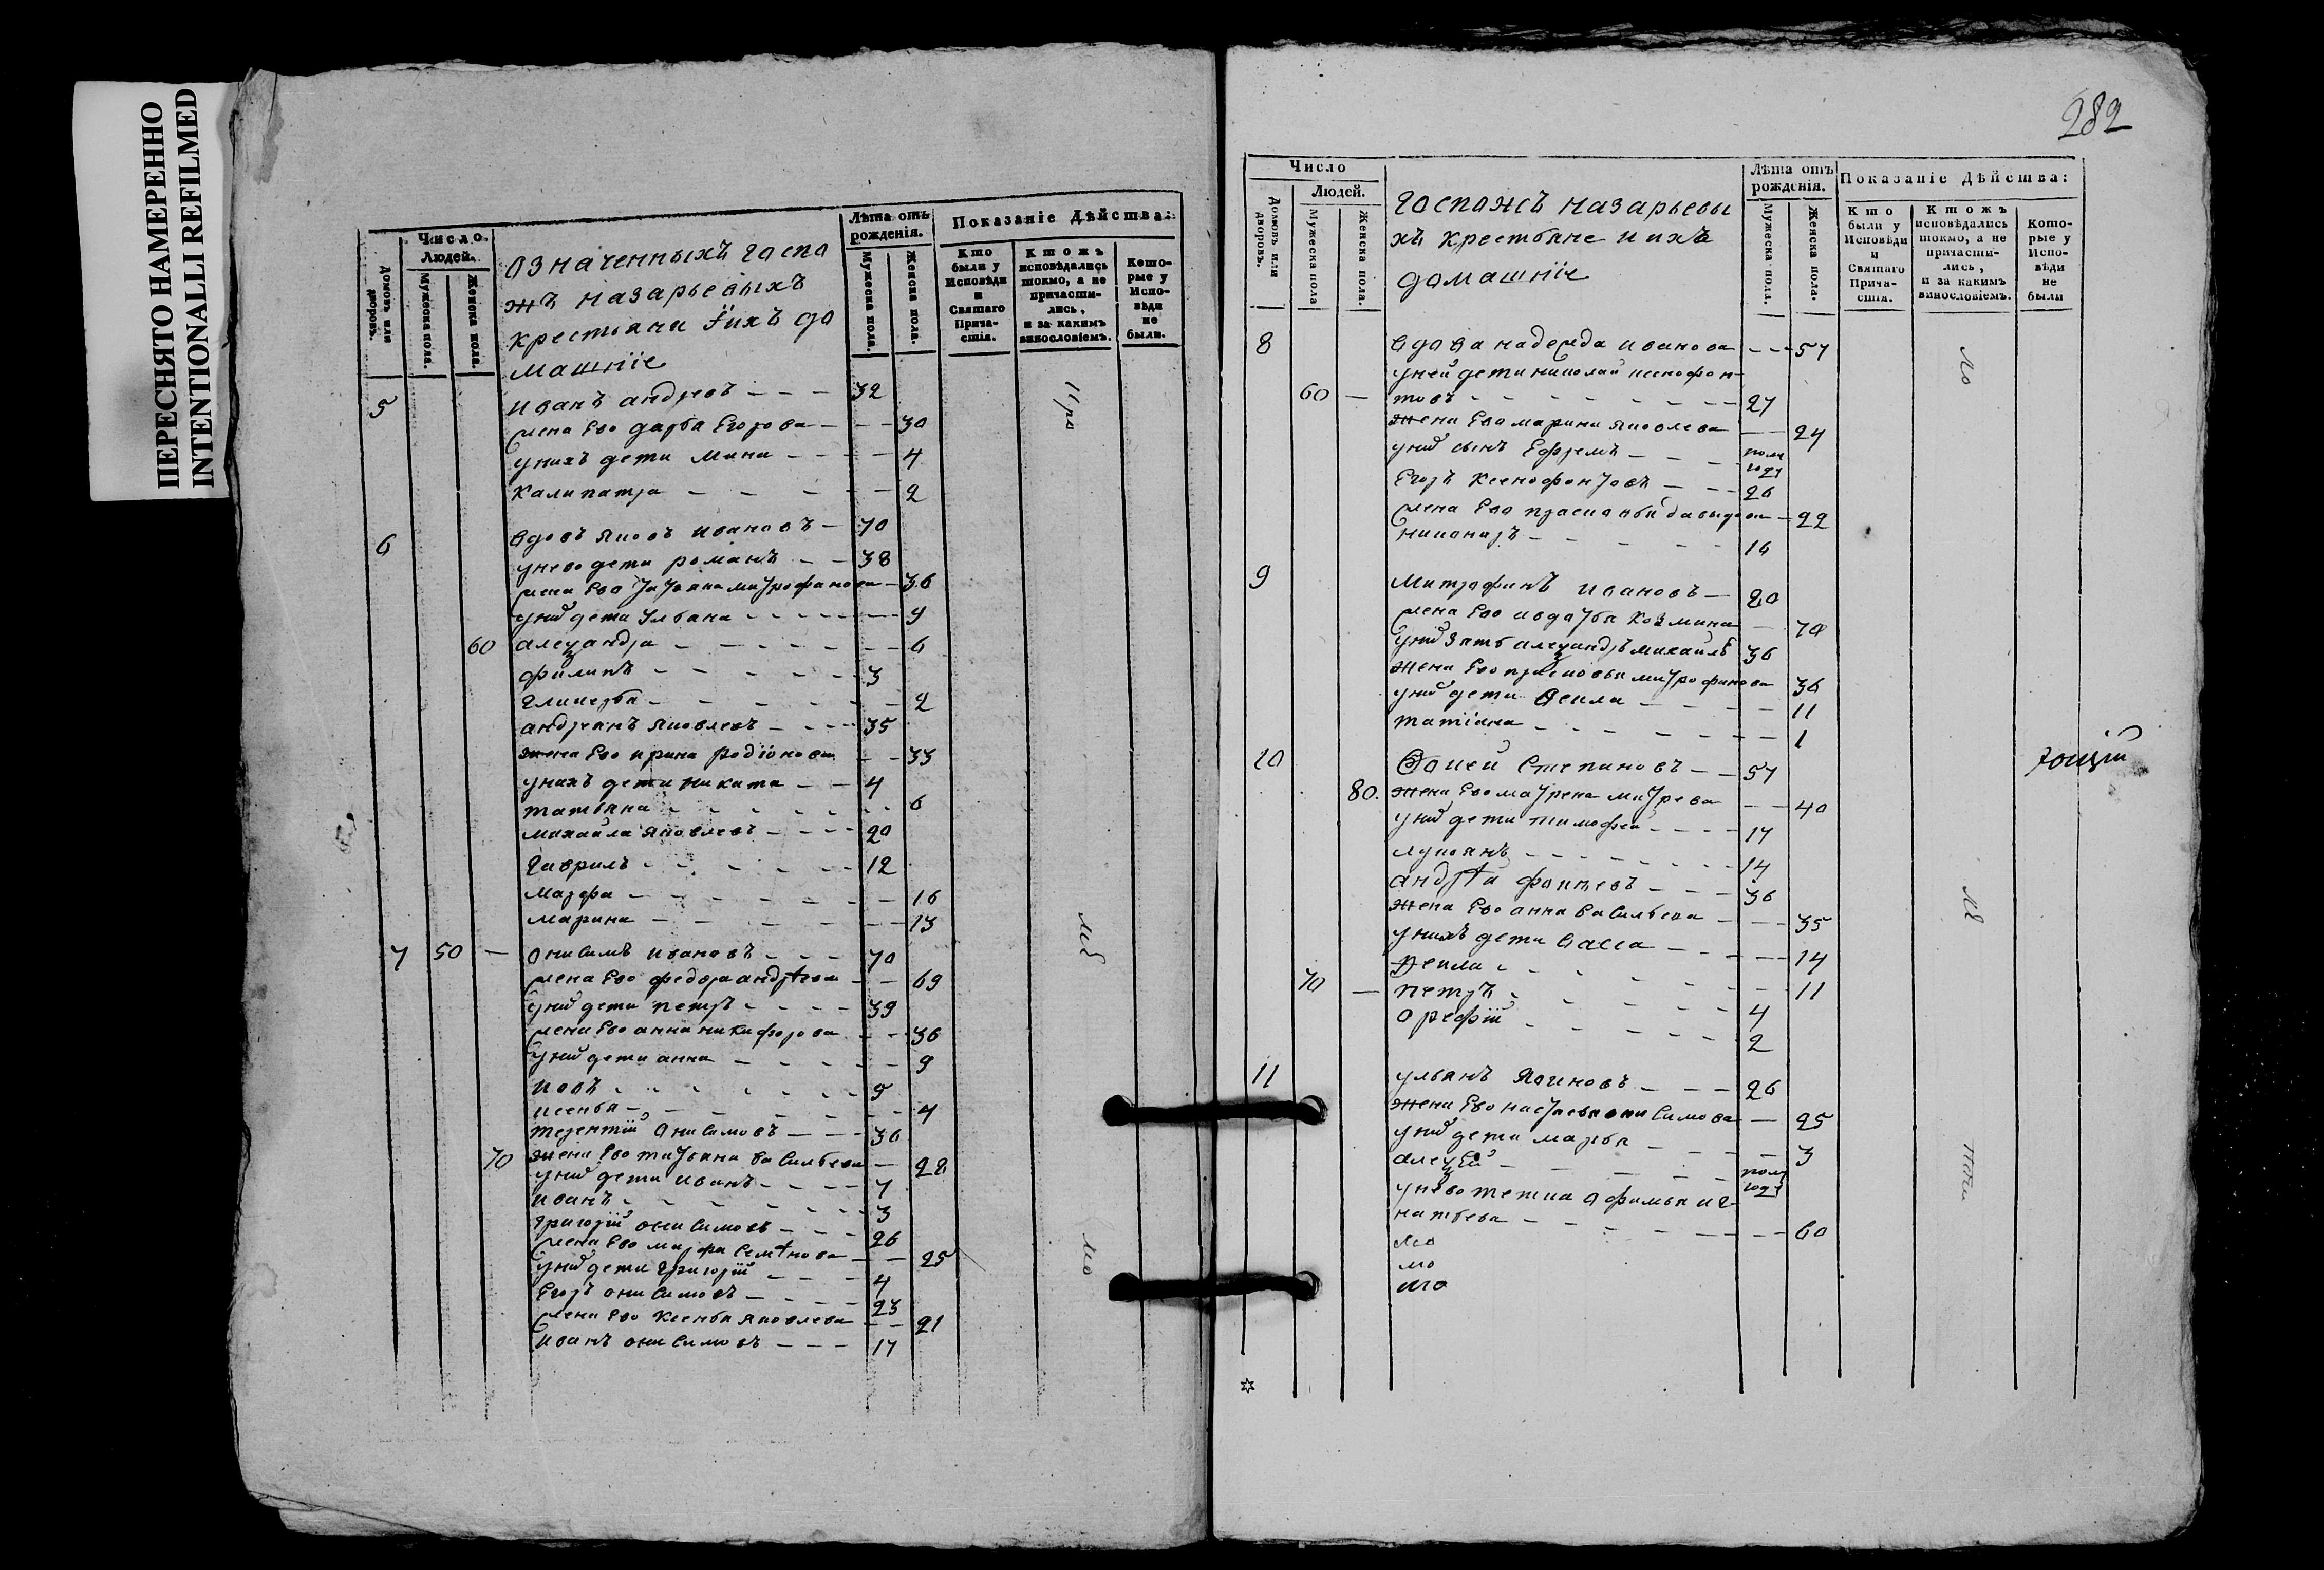 ПЕРЕСНЯТО НАМЕРЕННО
INTENTIONALLI REFILMED
Число
Людей.
Домовъ или дворовъ.
Мужеска пола.
Женска пола.
означенныхъ госпо
жъ назарьевыхъ
крестьяни ихъ до
машнїе
Лѣта отъ рожденія.
Мужеска пола.
Женска пола.
Показаніе Дѣйства:
Кто были у Исповѣди и Святаго Причастія.
Ктожъ исповѣдались токмо, а не причастились, и за какимъ винословіемъ.
Которые у Исповѣди не были.
5 иванъ андреевъ - - - 32
жена Ево дарья Егорова - - - 30
унихъ дети Мина - - - - 4
Калипатра - - - - - 2
6 вдовъ яковъ ивановъ - 70
унево дети романъ - - 38
жена Ево татьяна митрофанова - 36
унихъ дети Ульяна - - - - - 9
60 алеѯандра - - - - - - 6
филипъ - - - - - 3
Гликерья - - - - - - 2
андреанъ яковлевъ - - - - 35
жена Ево ирина родіонова - - 33
унихъ дети никита - - 4
татьяна - - - - - - 6
михайла яковлевъ - - - - 20
Гаврилъ - - - - - - 12
Марфа - - - - - - - 16
марина - - - - - - 13
7 50 - онисимъ ивановъ - - - 70
жена Ево федора андрѣева - - 69
унихъ дети петръ - - - - 39
жена Ево анна никифорова - - 36
унихъ дети анна - - - - - 9
иовъ - - - - - - - 9
ксенья - - - - - - - 4
терентій онисимовъ - - - 30
70 жена Ево татьяна васильева - 28
унихъ дети иванъ - - - - 7
иванъ - - - - - - - 3
григорій онисимовъ - - - 26
жена Ево марфа семѣнова - - 25
унихъ дети григорій - - - - 4
Егоръ онисимовъ - - - - 23
жена Ево Ксенья яковлева - - 21
иванъ онисимовъ - - - 17
282
Число
Людей.
Домовъ или дворовъ.
Мужеска пола
Женска пола.
госпожъ назарьевы
хъ крестьяне ихъ
домашнїе
Лѣта отъ рожденія.
Мужеска пола.
Женска пола.
Показаніе Дѣйства:
Кто были у Исповѣди и Святаго Причастія.
Ктожъ исповѣдались токмо, а не причастились, и за какимъ винословіемъ.
Которые у Исповѣди не были
8 вдова надежда иванова - - - 57
уней дети николай ксенофон-
60 - товъ - - - - - - - - - 27
жена Ево марина яковлева - - 24
унихъ сынъ Ефремъ - - - полугоду
Егоръ Ксенофонтовъ - - - 26
жена Ево прасковья давыдова - 22
никаноръ - - - - - - 16
9 Митрофанъ ивановъ - 80
жена Ево авдотья козмина - 70
унихъ зять алеѯандръ михайловъ 36
жена Ево прасковья митрофанова 36
унихъ дети Фекла - - - - 11
татіана - - - - - - - 1
10 Фокей Степановъ - - 57
80. жена Ево матрена митрева - - 40
унихъ дети тимофей - - - - 17
лукоянъ - - - - - - - - 14
андрѣй фокеевъ - - - 36
жена Ево анна васильева - - - 35
унихъ дети васса - - - - 14
Фекла - - - - - - - - 11
70 - петръ - - - - - - 4
орефій - - - - - - 2
11 ульянъ яковлевъ - - - 26
жена Ево настасья онисимова - 25
унихъ дети марья - - - - - 3
алеѯѣй - - - - - - полугоду
унево тетка афимья иг-
натьева - - - - - - - 60